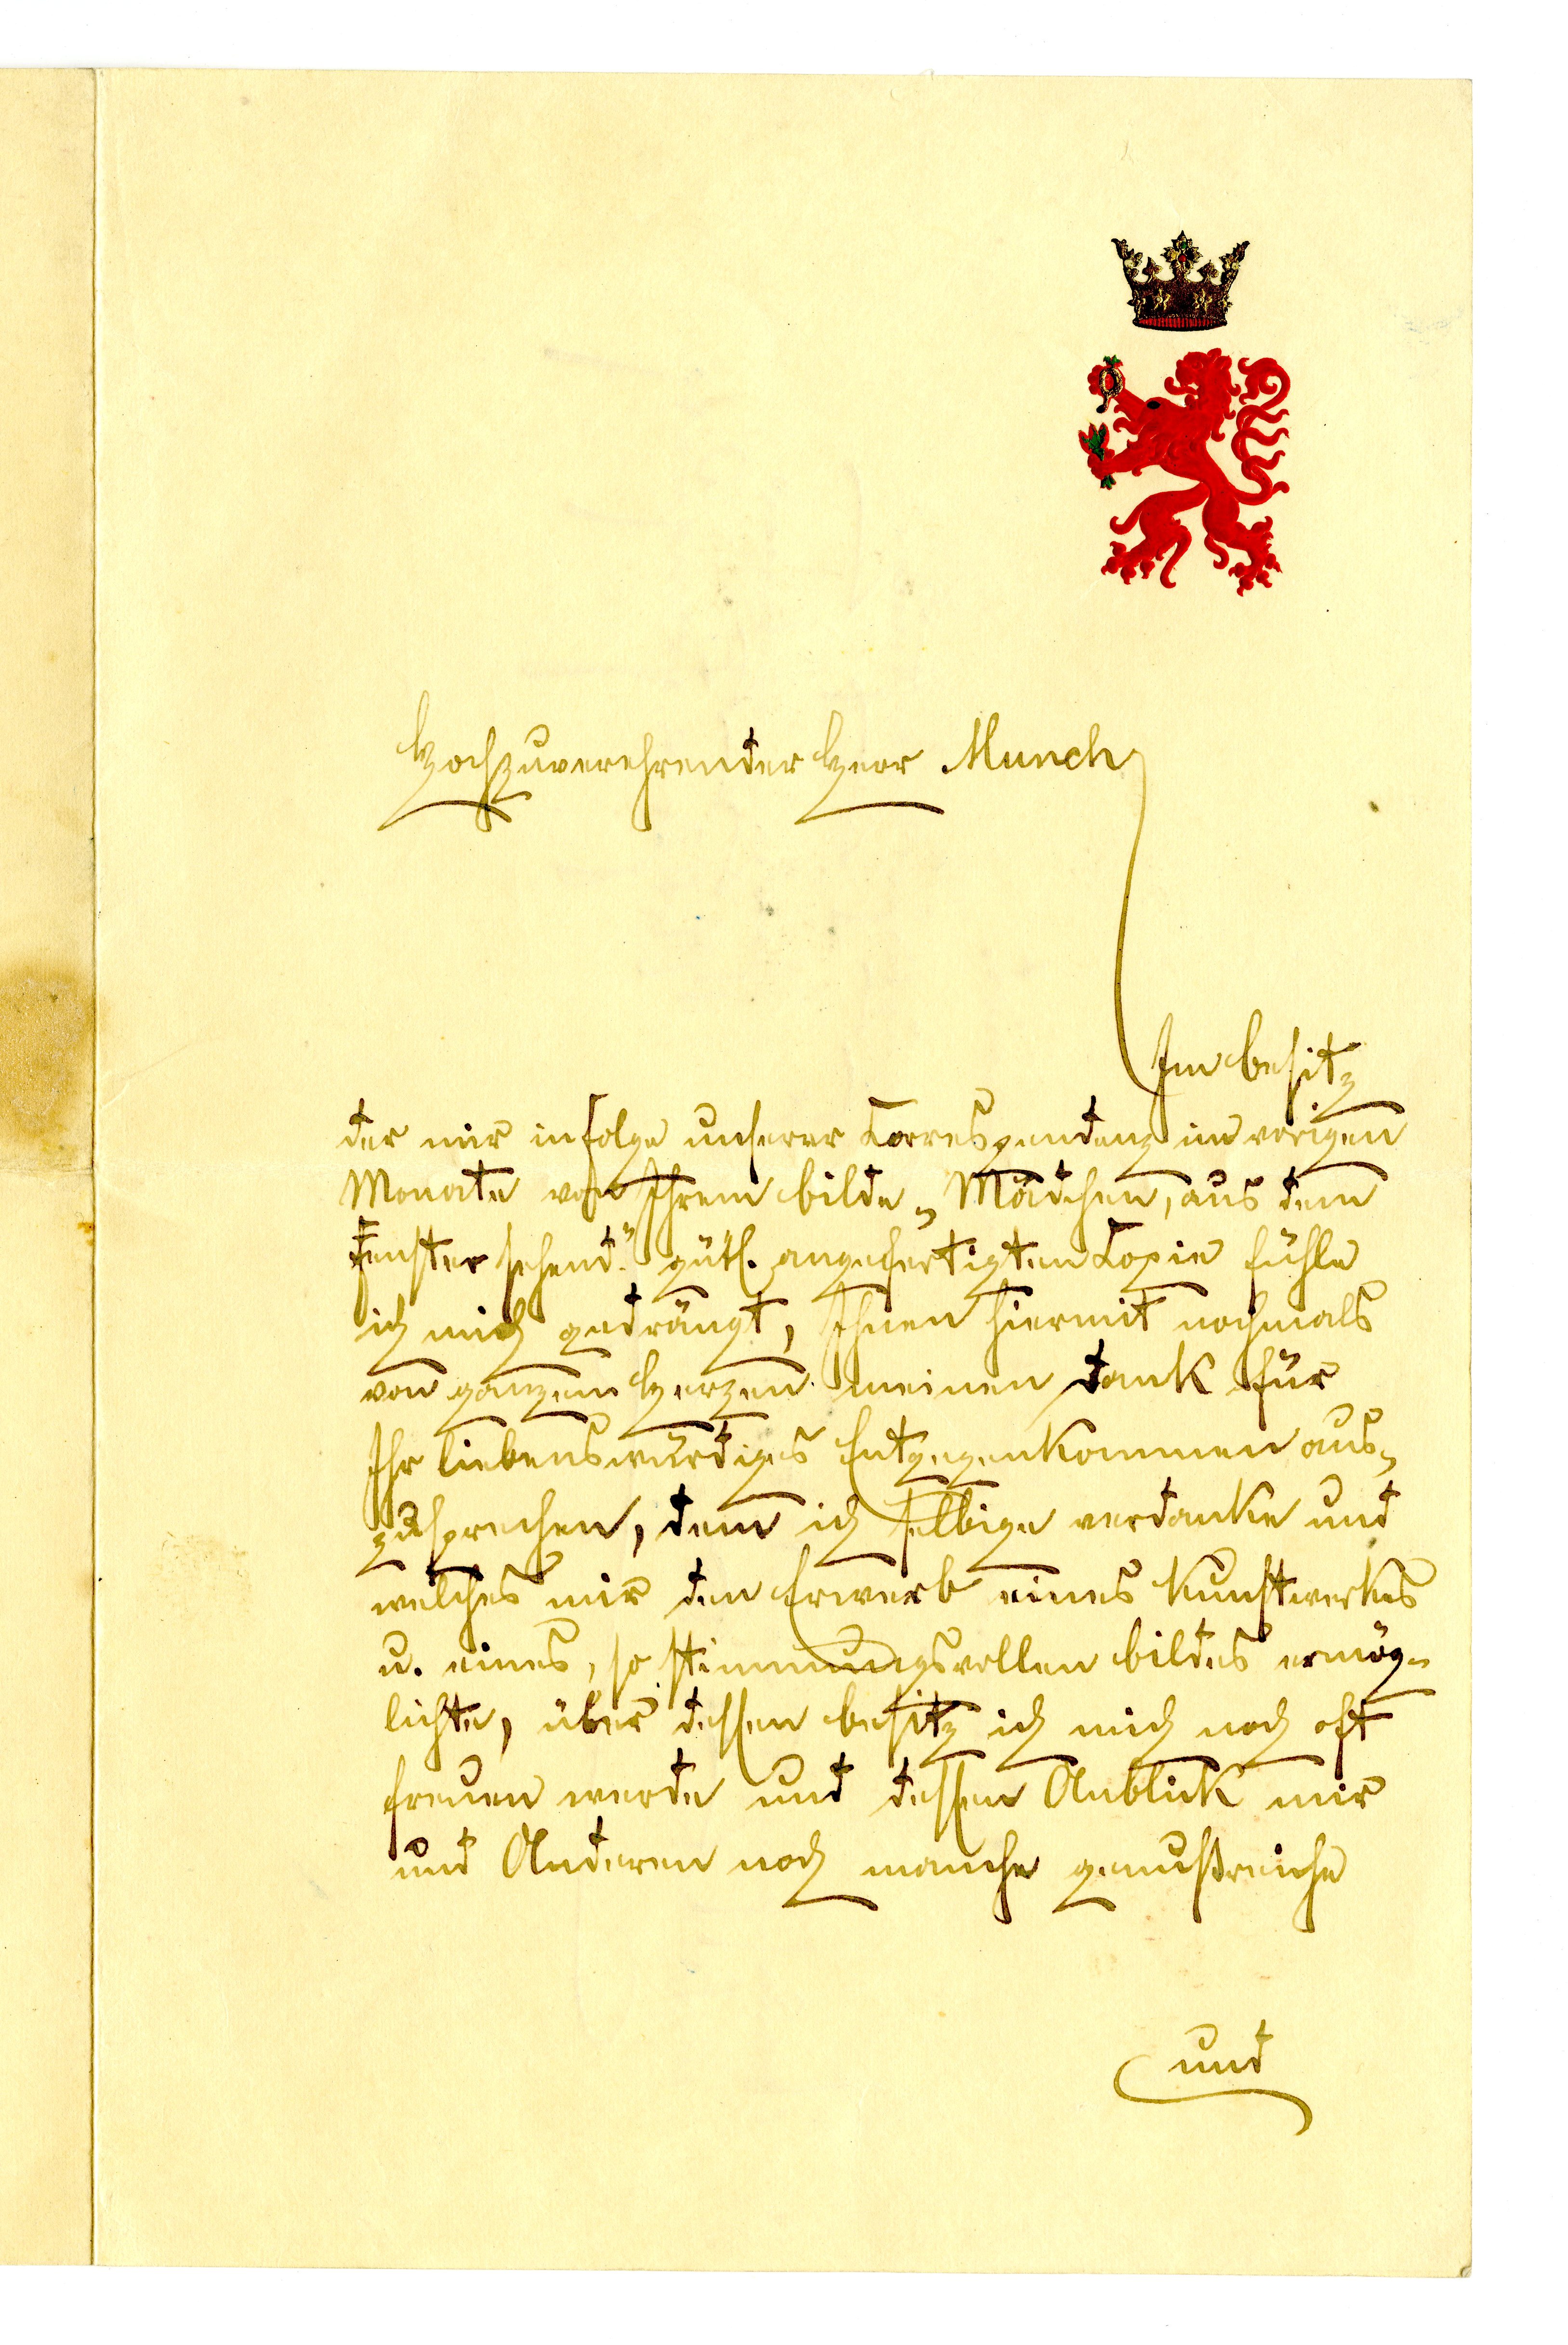 Hochzuverehrender Herr Munch
Im Besitz
der mir infolge unserer Correspondenz im vorigen
Monate von Ihrem Bilde „Mädchen, aus dem
Fenster sehend." gütl. angefertigten Copie fühle
ich mich gedrängt, Ihnen hiermit nochmals
von ganzem Herzen meinen Dank für
Ihr liebenswürdiges Entgegenkommen aus-
zusprechen, dem ich selbige verdanke und
welches mir den Erwerb eines Kunstwerkes
u. eines, so stimmungsvollen Bildes ermög-
lichte, über dessen Besitz ich mich noch oft
freuen werde und dessen Anblick mir
und Anderen noch manche genußreiche
und